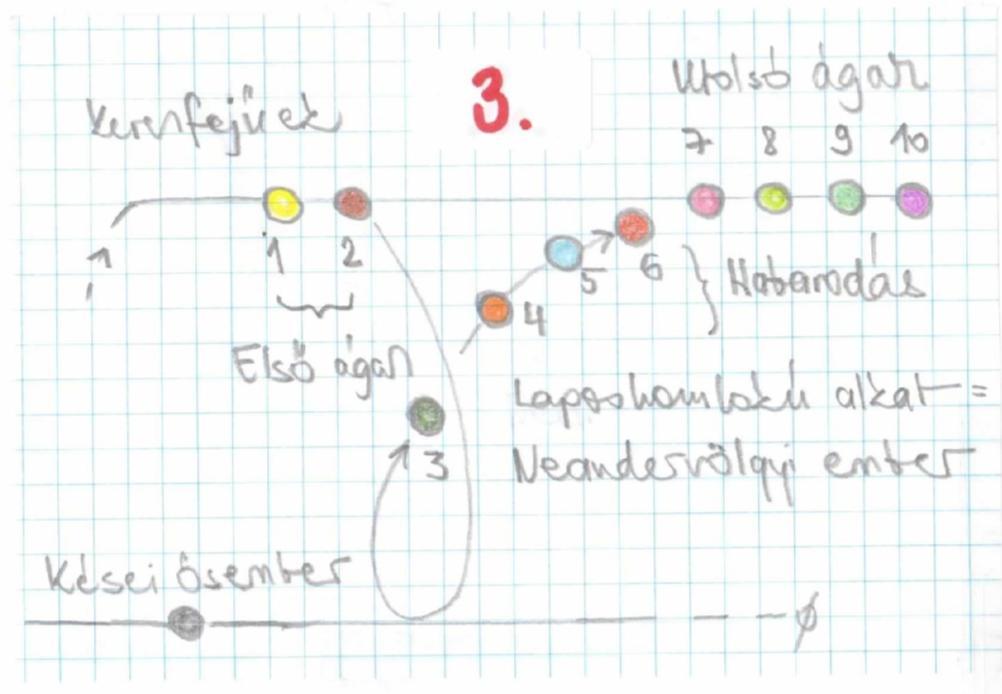 3.
Kerekfejűek
Utolsó ágak
7 8 9 10
1 2
5 6
Habarodás
4
Első ágak
Laposhomlokú alkat =
3
Neandervölgyi ember
Kései ősember
ø